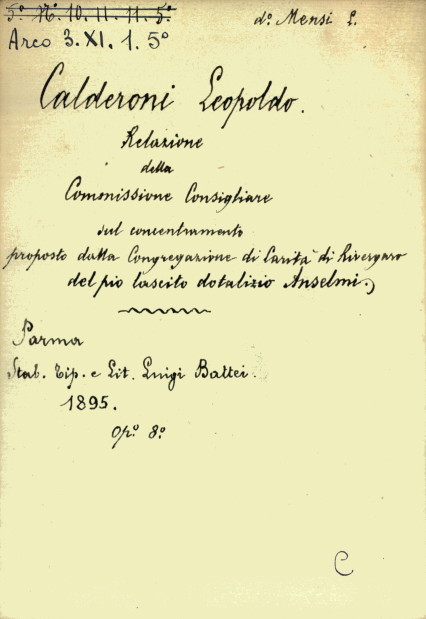 5º Nº. 10. 11. 11. 5º
dº. Mensi L.
Arco 3. XI. 1. 5º
Calderoni Leopoldo.
Relazione
della
Commissione Consigliare
sul concentramento
proposto dalla Congregazione di Carità di Rivergaro
del pio lascito dotalizio Anselmi.)
Parma
Stab. Tip. e Lit. Luigi Battei.
1895.
Op.º 8.º
C